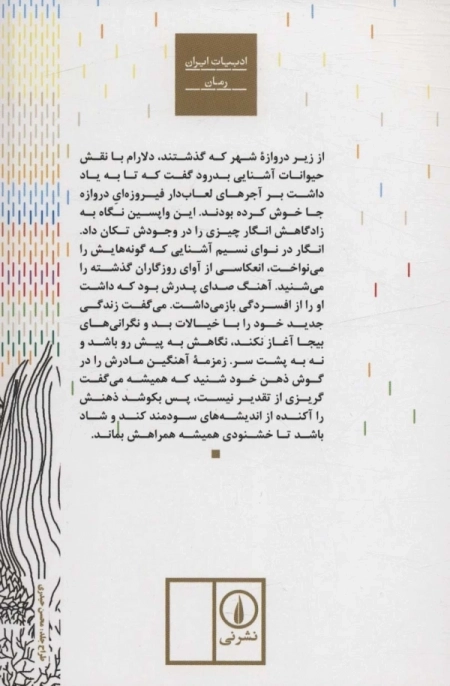 ادبیات ایران
رمان
از زیر دروازهٔ شهر که گذشتند، دلارام با نقش
حیوانات آشنایی بدرود گفت که تا به یاد
داشت بر آجرهای لعاب‌دار فیروزه‌ایِ دروازه
جا خوش کرده بودند. این واپسین نگاه به
زادگاهش انگار چیزی را در وجودش تکان داد.
انگار در نوای نسیم آشنایی که گونه‌هایش را
می‌نواخت، انعکاسی از آوای روزگاران گذشته را
می‌شنید. آهنگ صدای پدرش بود که داشت
او را از افسردگی بازمی‌داشت. می‌گفت زندگی
جدید خود را با خیالات بد و نگرانی‌های
بیجا آغاز نکند، نگاهش به پیش رو باشد و
نه به پشت سر. زمزمهٔ آهنگین مادرش را در
گوش ذهن خود شنید که همیشه می‌گفت
گریزی از تقدیر نیست، پس بکوشد ذهنش
را آکنده از اندیشه‌های سودمند کند و شاد
باشد تا خشنودی همیشه همراهش بماند.
نشرنی
طراح جلد: محسن